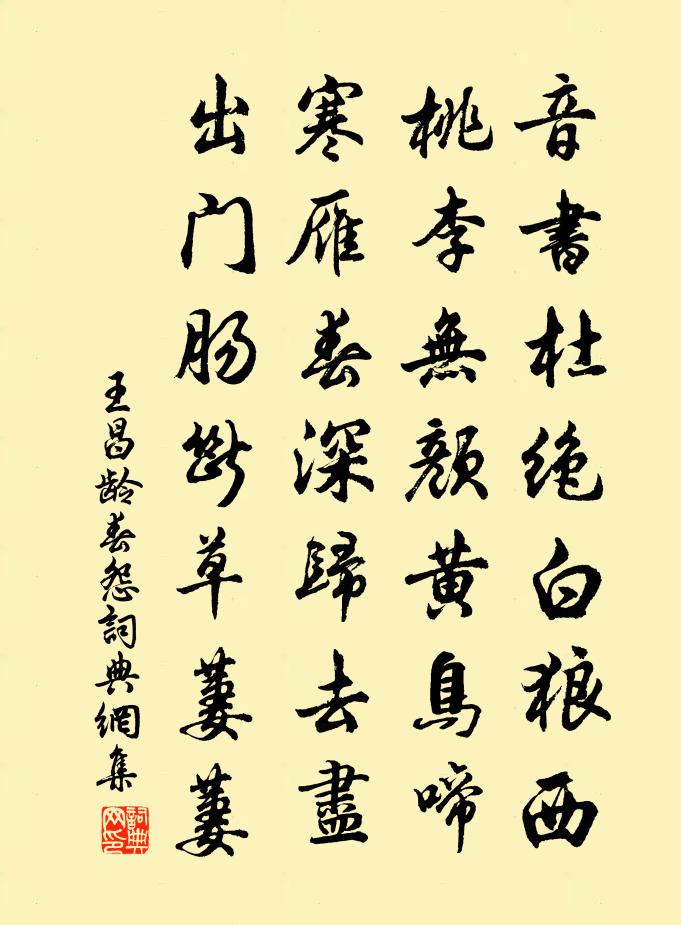 音書杜絶白狼西
桃李無顔黃鳥啼
寒雁春深歸去盡
出门肠斷草萋萋
王昌龄春怨詞典網集
詞典网印